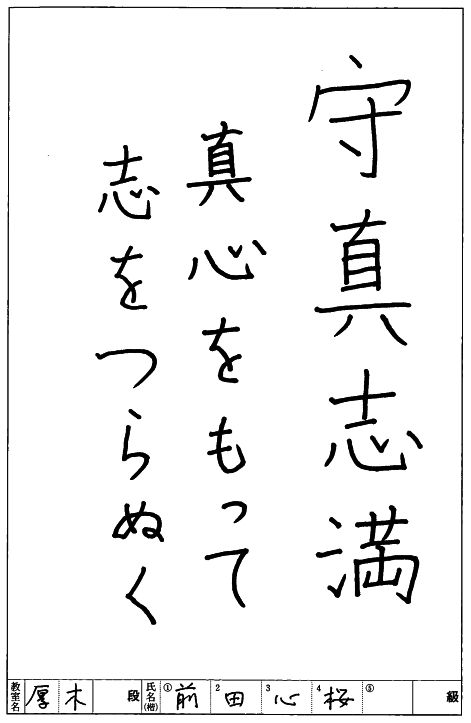 守真志満
真心をもって
志をつらぬく
教室名 厚木 段 氏名(楷) ① 前 2 田 3 心 4 桜 ⑤ 級